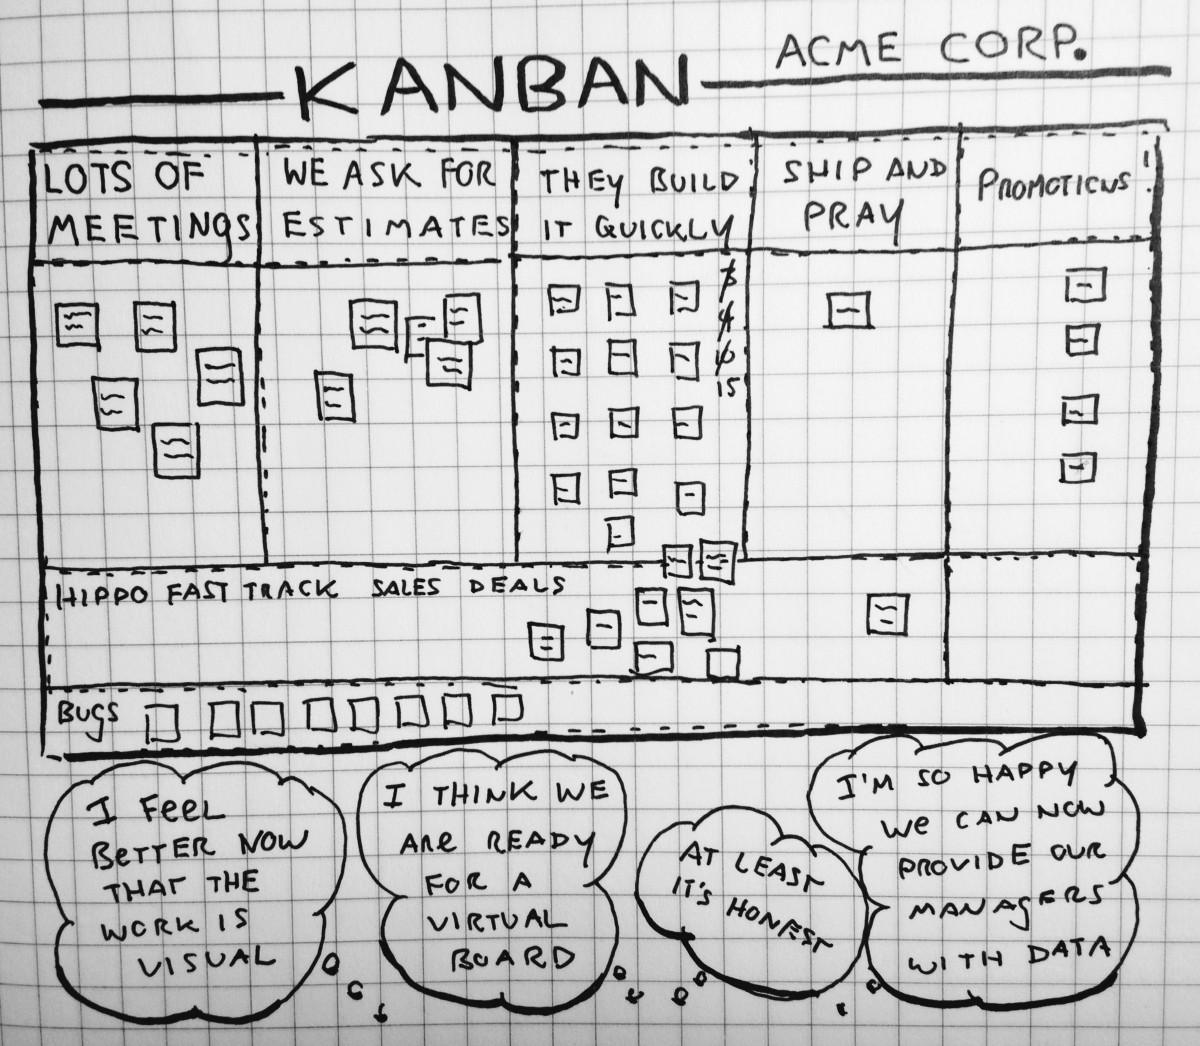 ACME CORP.
KANBAN
LOTS OF
MEETINGS
WE ASK FOR
ESTIMATES
THEY BUILD
IT QUICKLY
SHIP AND
PRAY
PROMOTIONS!
3
4
6
15
HIPPO FAST TRACK SALES DEALS
BUGS
I FEEL
BETTER NOW
THAT THE
WORK IS
VISUAL
I THINK WE
ARE READY
FOR A
VIRTUAL
BOARD
AT LEAST
IT'S HONEST
I'M SO HAPPY
WE CAN NOW
PROVIDE OUR
MANAGERS
WITH DATA